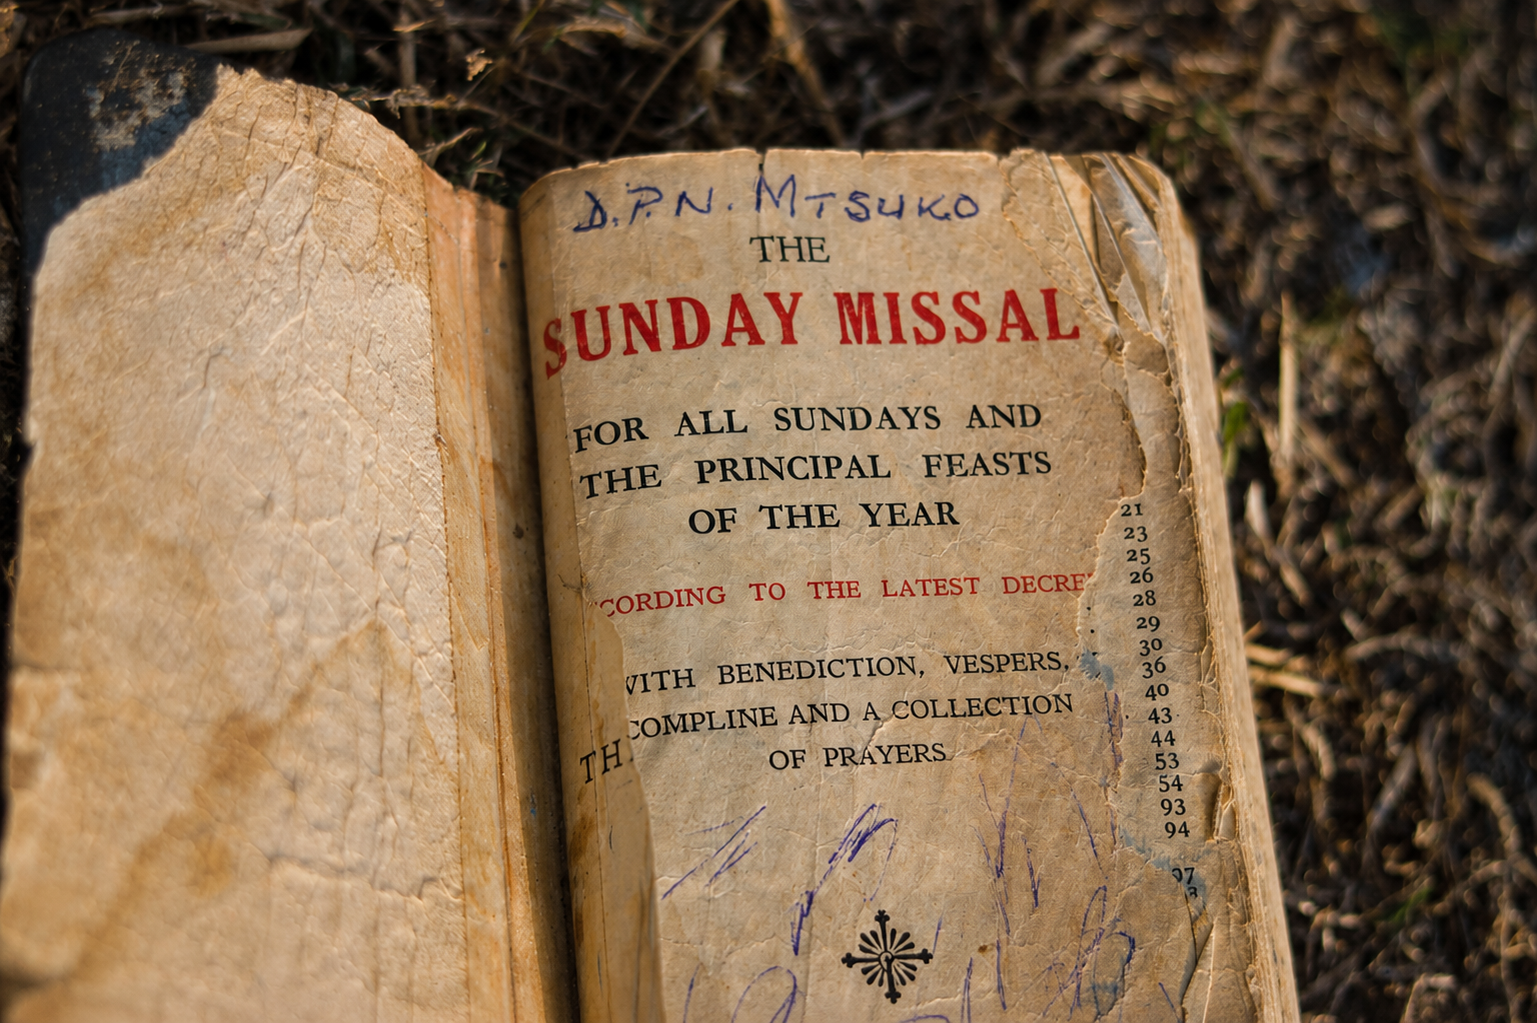 D.P.N. MTSUKO
THE
SUNDAY MISSAL
FOR ALL SUNDAYS AND
THE PRINCIPAL FEASTS
OF THE YEAR
CORDING TO THE LATEST DECRE
WITH BENEDICTION, VESPERS,
COMPLINE AND A COLLECTION
OF PRAYERS
TH
21
23
25
26
28
29
30
36
40
43
44
53
54
93
94
97